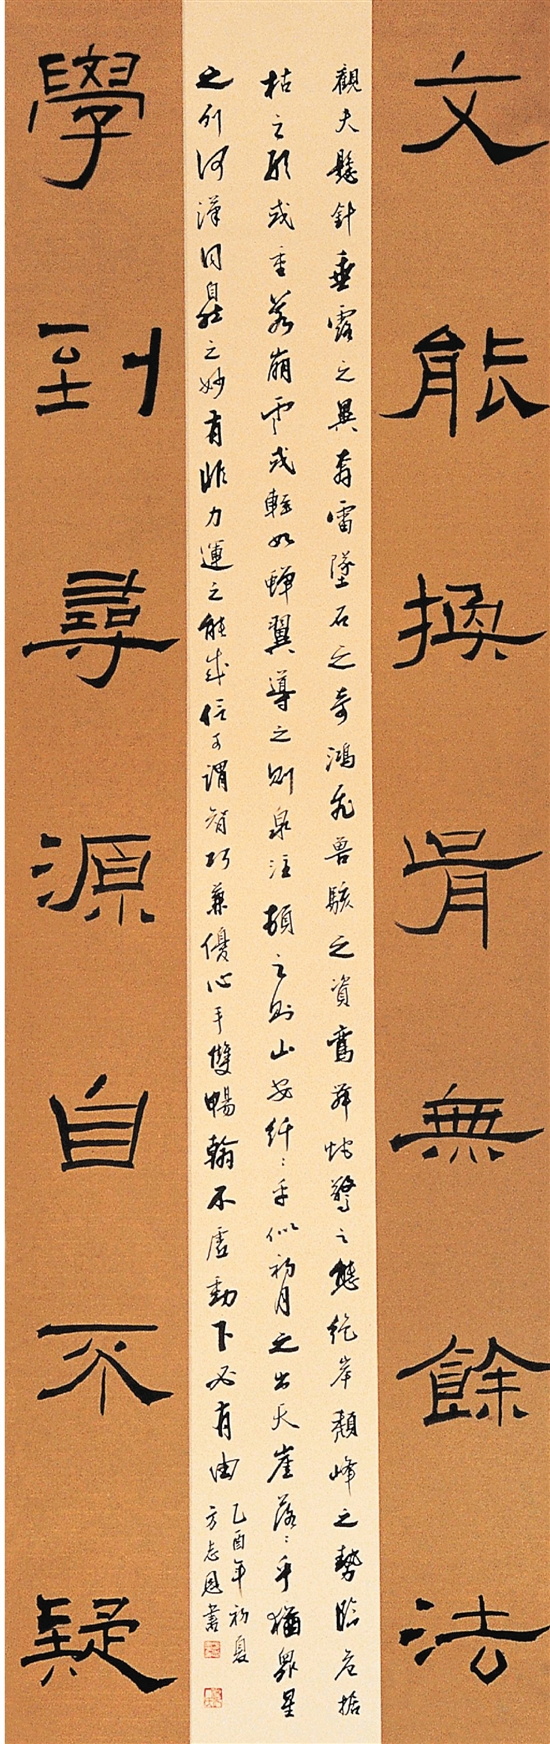 文能換骨無餘法
觀夫懸針垂露之異奔雷墜石之奇鴻飛兽駭之資鸞舞蛇驚之態絕岸頹峰之勢臨危据
枯之形或重若崩雲或輕如蟬翼導之則泉注頓之則山安纤〻乎似初月之出天崖落〻乎猶眾星
之列河漢同自然之妙有非力運之能成信可謂智巧兼優心手雙暢翰不虛動下必有由
乙酉年初夏
方志恩書
學到尋源自不疑